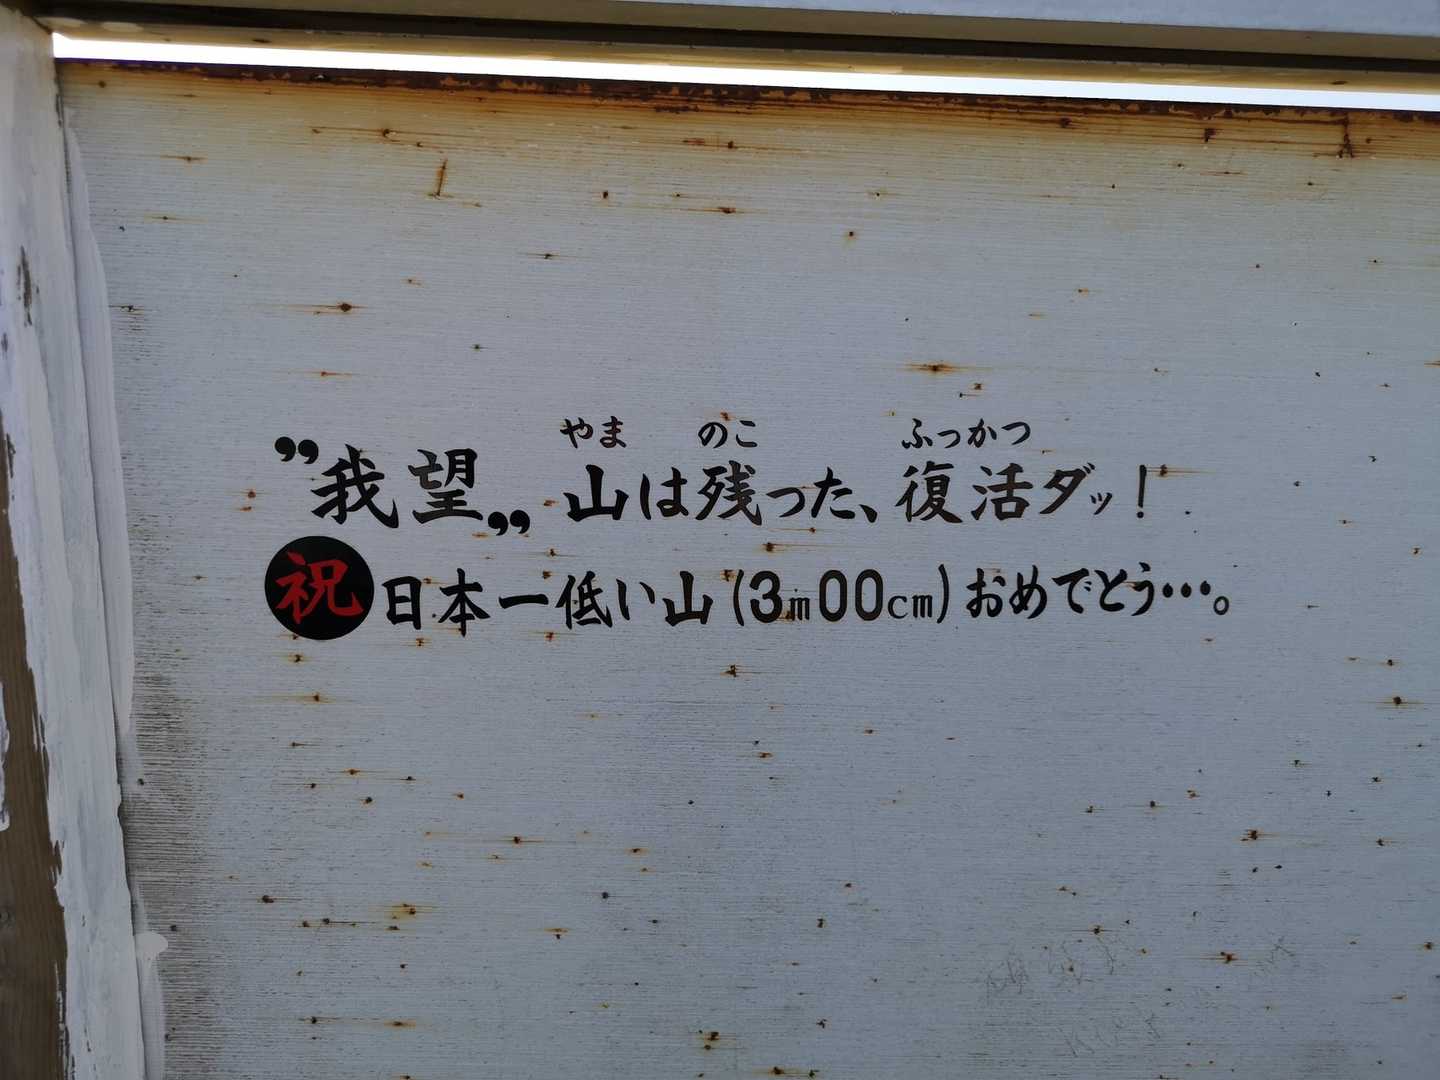 やま のこ ふっかつ
”我望„ 山は残った、復活ダッ！
祝 日本一低い山(3m00cm)おめでとう・・・。